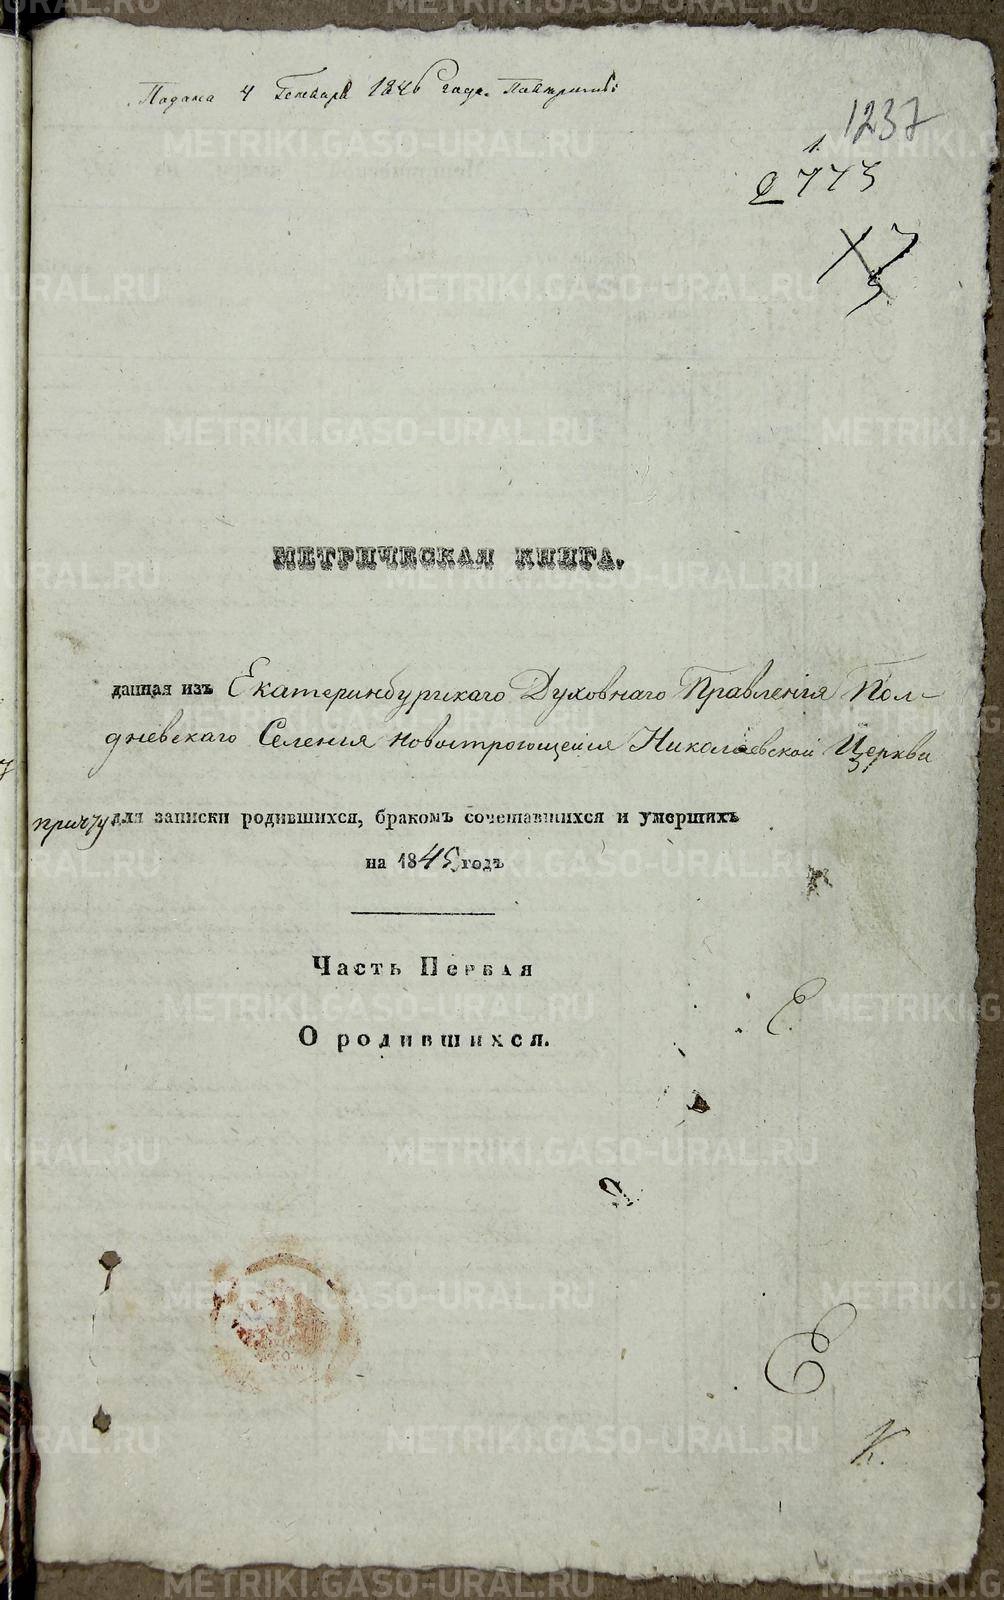 Подана 4 Генваря 1846 года.
1237
1.
2 773
МЕТРИЧЕСКАЯ КНИГА.
данная изъ Екатеринбургскаго Духовнаго Правленія Пол-
дневскаго Селенія новостроющейся Николаевской Церкви
причту для записки родившихся, бракомъ сочетавшихся и умершихъ
на 1845 годъ
Часть Первая
О родившихся.
Е.
Е
К.
METRIKI.GASO-URAL.RU